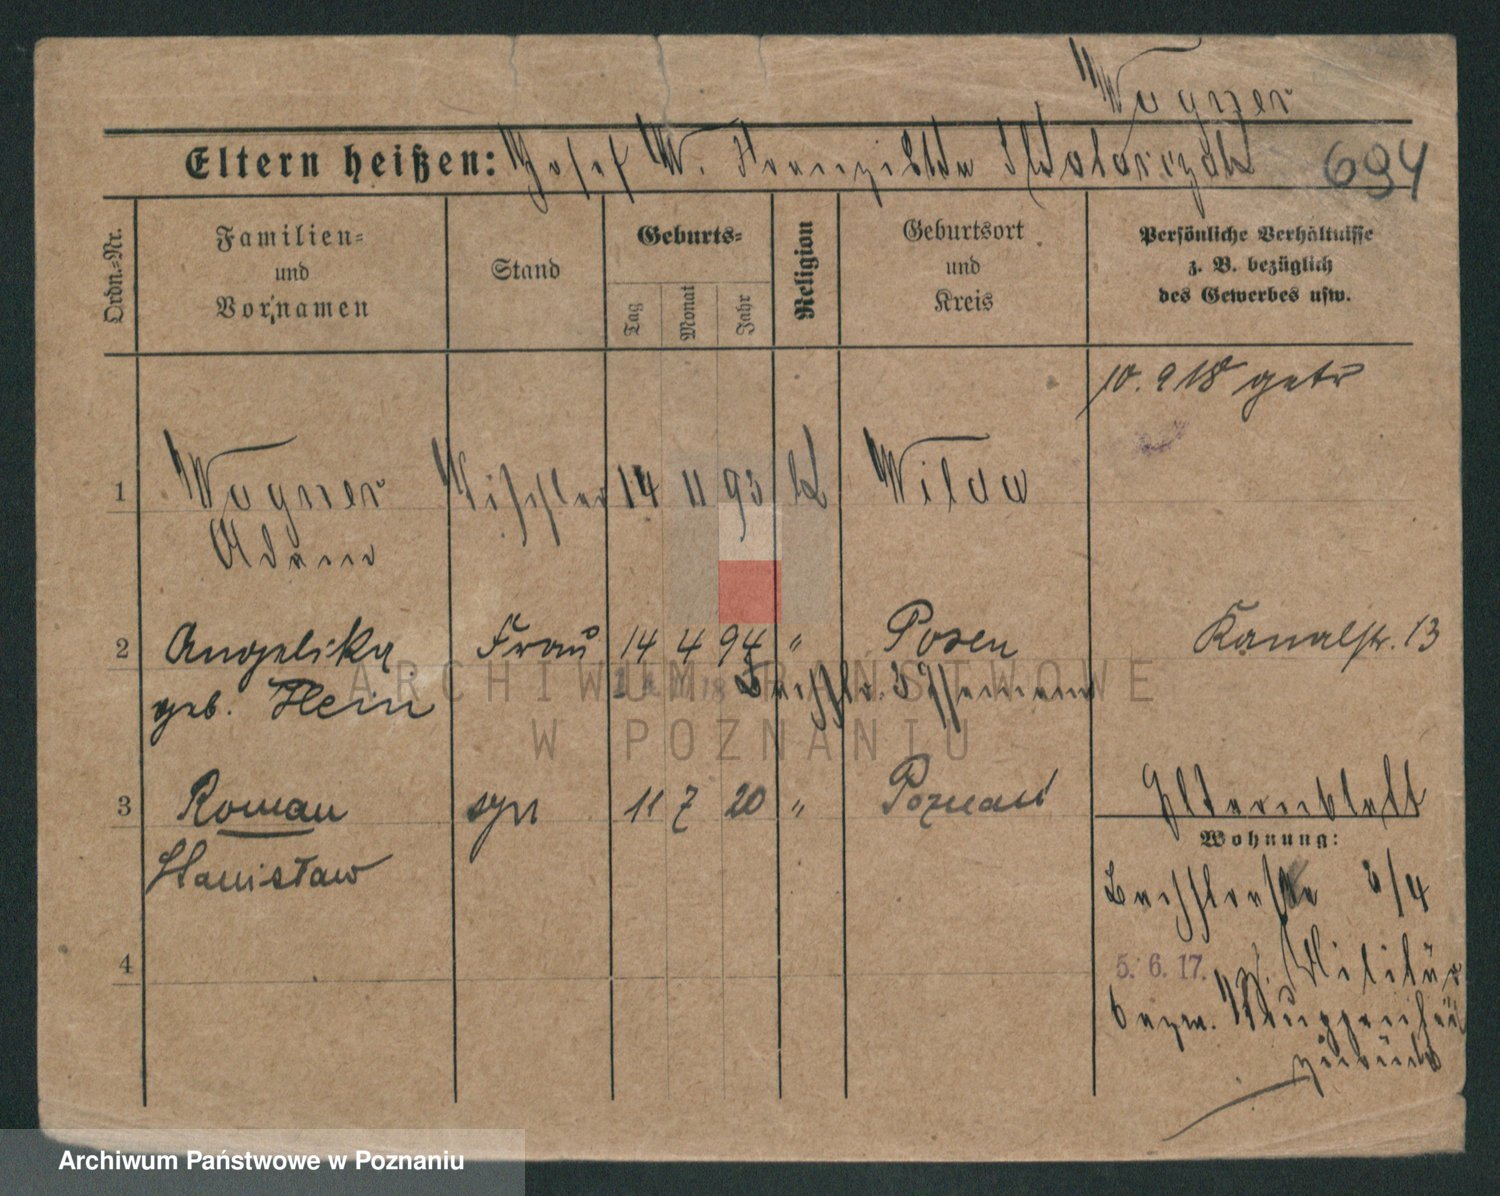 Wagner
Eltern heißen: Josef W. Franziska
694
Ordn.-Nr.
Familien-
und
Vornamen
Stand
Geburts-
Tag
Monat
Jahr
Religion
Geburtsort
und
Kreis
Persönliche Verhältnisse
z. B. bezüglich
des Gewerbes usw.
10. 9 18 getr
1 Wagner Tischler 14 11 93 k Wilda
Adam
2 Angelika Frau 14 4 94 " Posen Kanalstr. 13
geb. Klein
3 Roman syn 11 7 20 " Poznań Elternblatt
Wohnung:
Stanisław
Bachstraße 3/4
4
5. 6. 17. v. Militär
zurück
ARCHIWUM PAŃSTWOWE
W POZNANIU
Archiwum Państwowe w Poznaniu